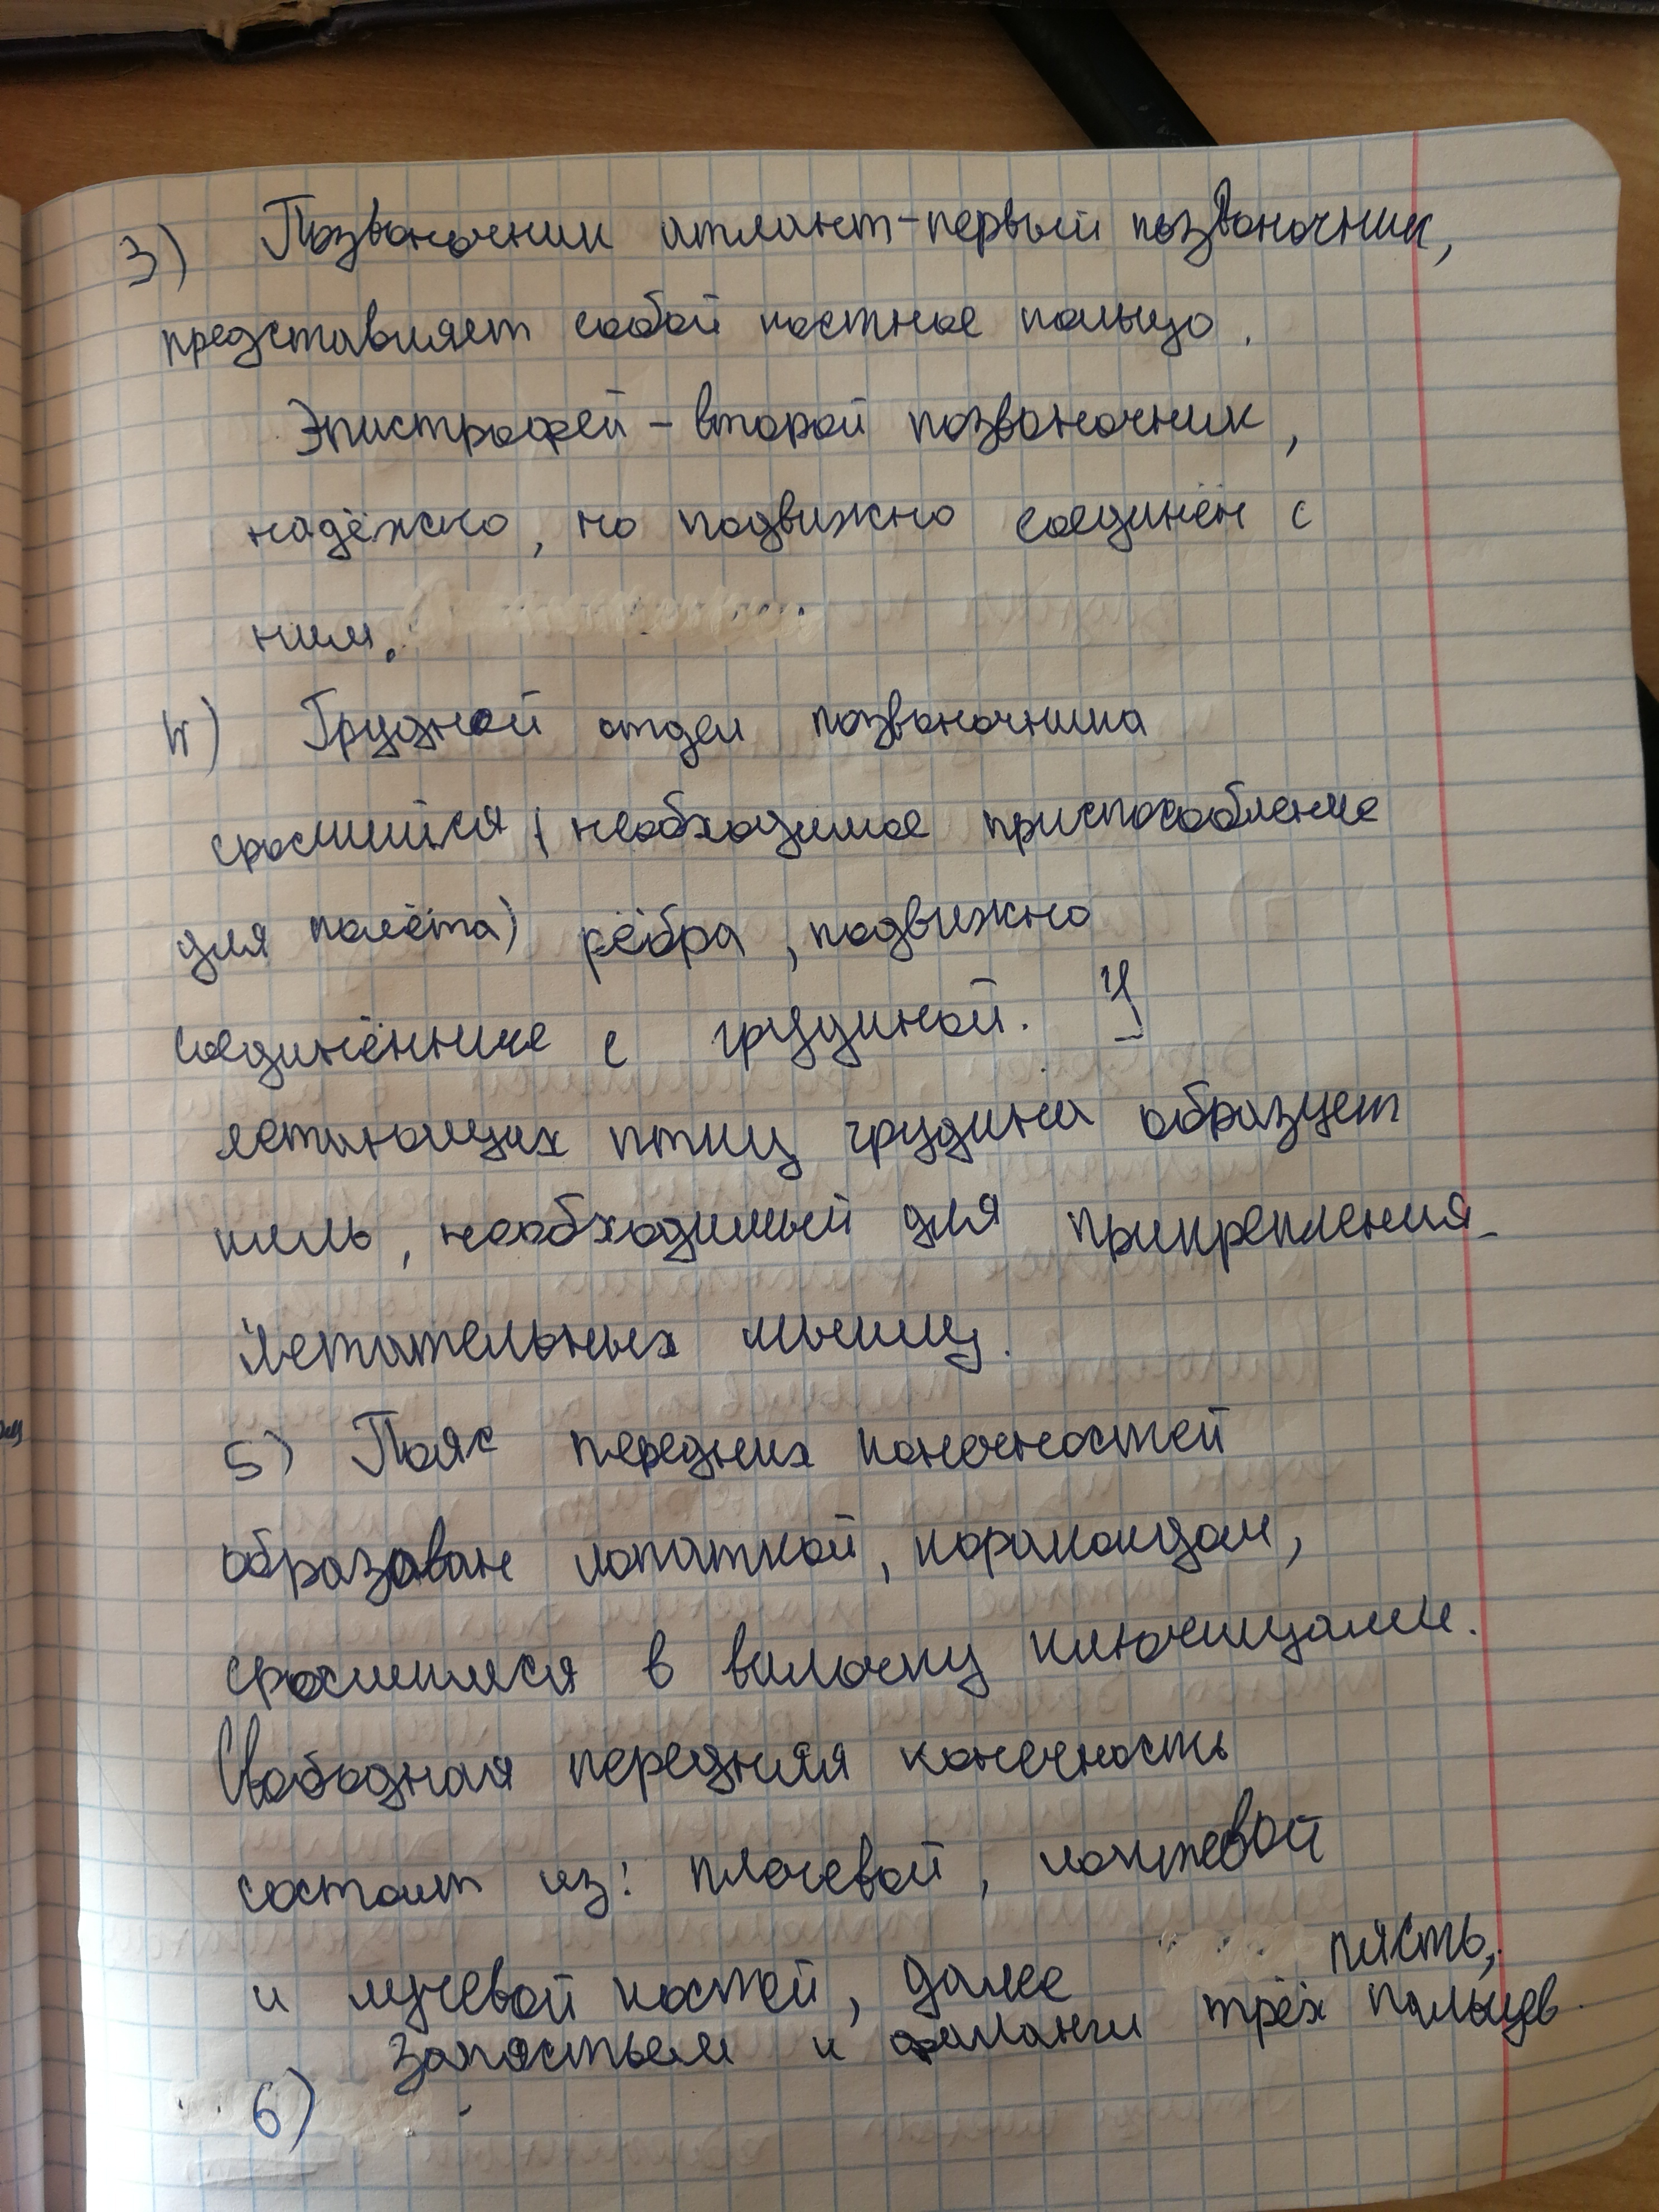 3) Позвоночник атлант-первый позвоночник,
представляет собой костное кольцо.
Эпистрофей - второй позвоночник,
надёжно, но подвижно соединён с
ним.
4) Грудной отдел позвоночника
сросшийся (необходимое приспособление
для полёта) рёбра, подвижно
соединённые с грудиной. У
летающих птиц грудина образует
киль, необходимый для прикрепления
летательных мышц.
5) Пояс передних конечностей
образован лопаткой, коракоидом,
сросшимися в вилочку ключицами.
Свободная передняя конечность
состоит из: плечевой, локтевой
и лучевой костей, далее пясть,
запястьем и фаланги трёх пальцев.
6)